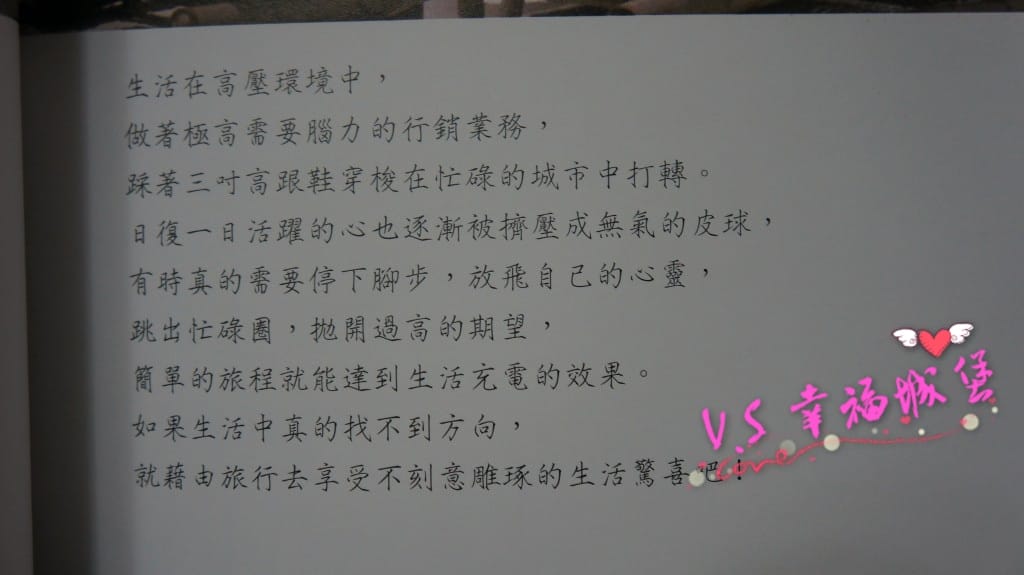 生活在高壓環境中，
做著極高需要腦力的行銷業務，
踩著三吋高跟鞋穿梭在忙碌的城市中打轉。
日復一日活躍的心也逐漸被擠壓成無氣的皮球，
有時真的需要停下腳步，放飛自己的心靈，
跳出忙碌圈，拋開過高的期望，
簡單的旅程就能達到生活充電的效果。
如果生活中真的找不到方向，
就藉由旅行去享受不刻意雕琢的生活驚喜吧！
V.S 幸福城堡